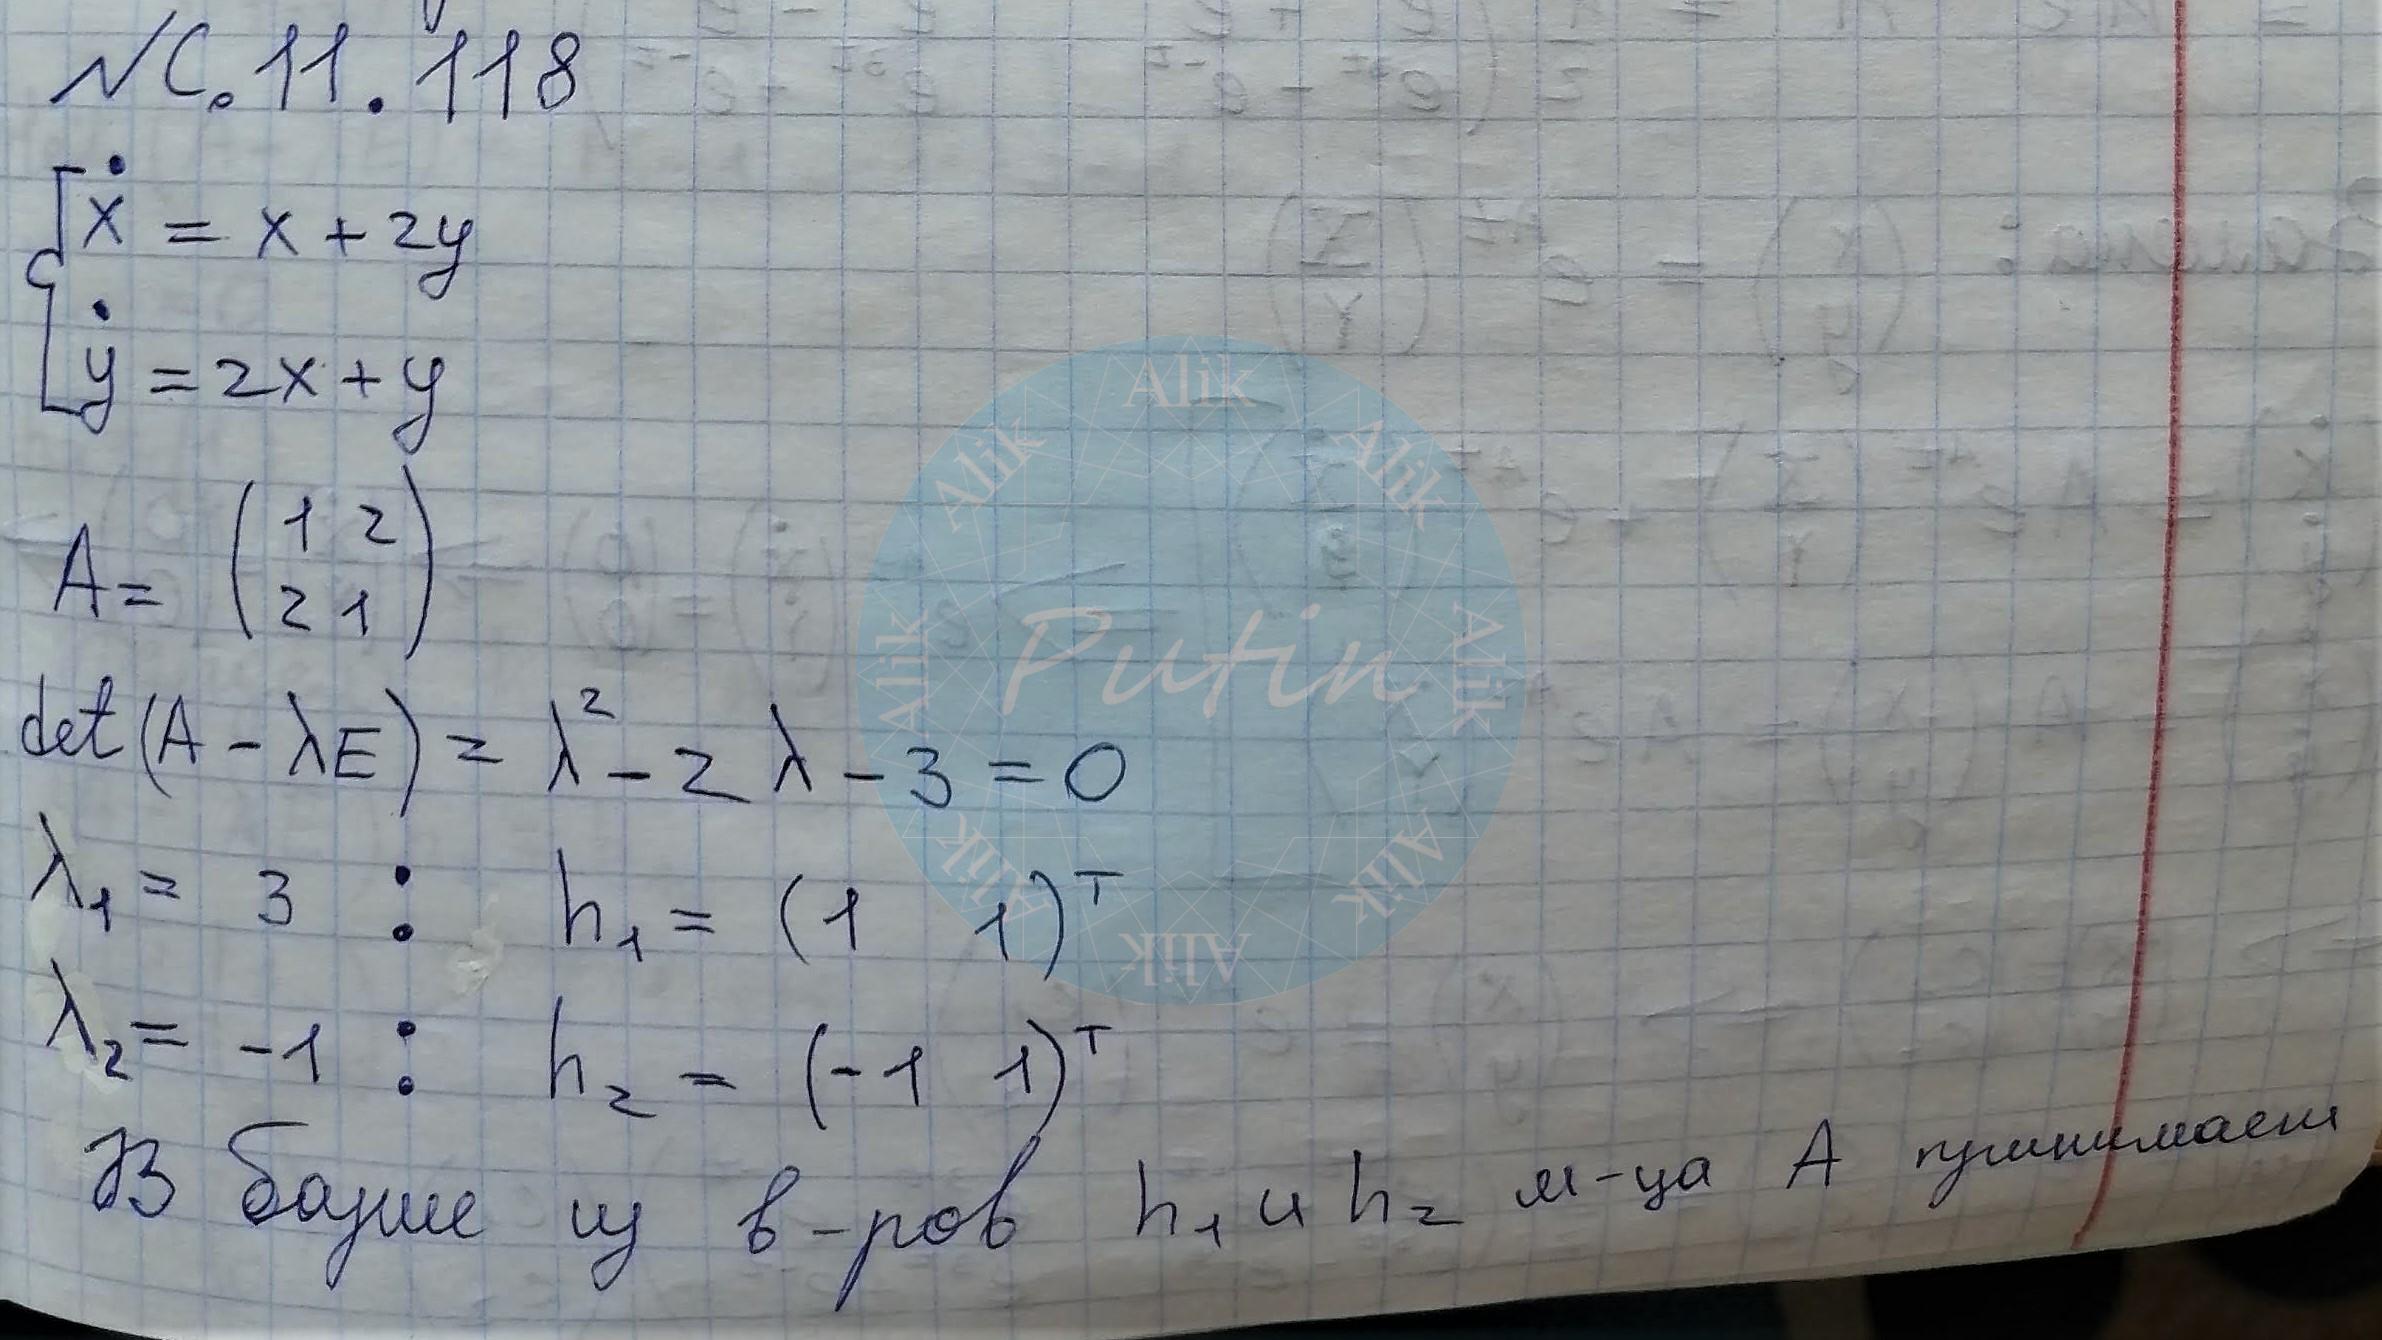 № С.11.118
ẋ = x + 2y
ẏ = 2x + y
A = (1 2
2 1)
det(A - λE) = λ² - 2λ - 3 = 0
λ₁ = 3 : h₁ = (1 1)ᵀ
λ₂ = -1 : h₂ = (-1 1)ᵀ
В базисе из в-ров h₁ и h₂ м-ца A принимает
Alik
Alik
Alik
Alik
Putin
Alik
Alik
Alik
Alik